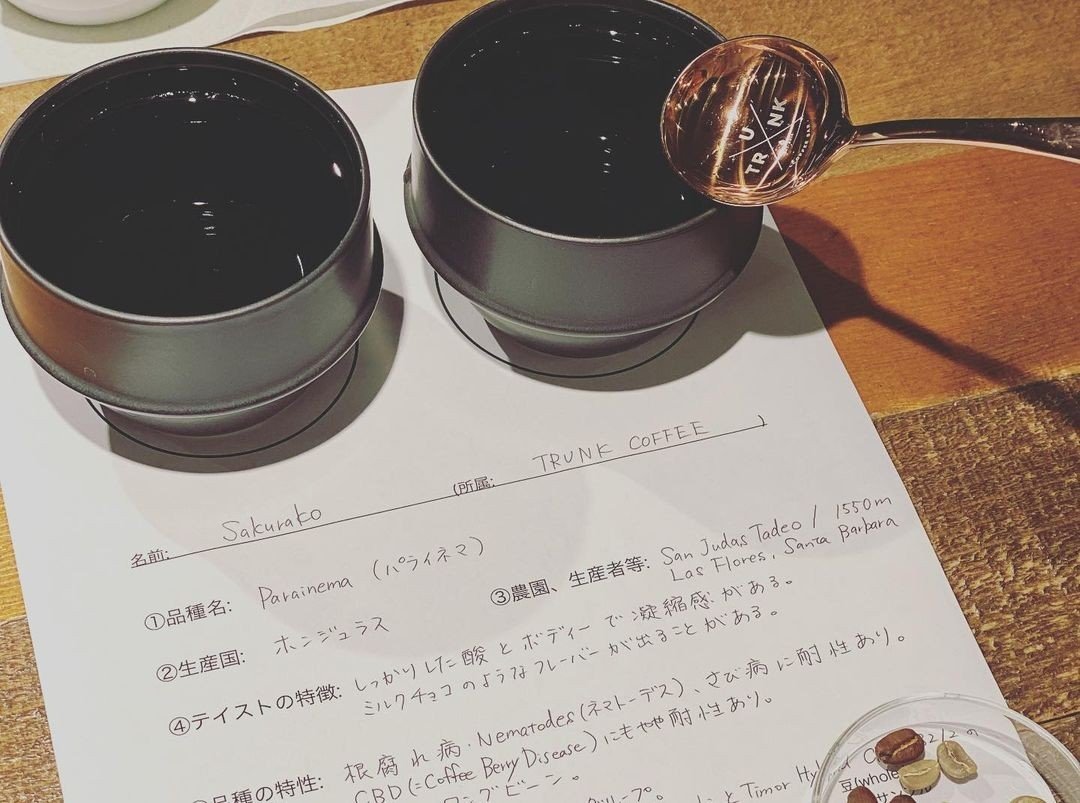 TRUNK
COFFEE BAR
名前: Sakurako (所属: TRUNK COFFEE )
①品種名: Parainema (パライネマ)
②生産国: ホンジュラス
③農園、生産者等: San Judas Tadeo / 1550m
Las Flores, Santa Barbara
④テイストの特徴: しっかりした酸とボディーで凝縮感がある。
ミルクチョコのようなフレーバーが出ることがある。
品種の特性: 根腐れ病・Nematodes(ネマトーデス)、さび病に耐性あり。
CBD(=Coffee Berry Disease)にもやや耐性あり。
ロングビーン。
グループ。
とTimor Hy
の
豆(whole
サンプル